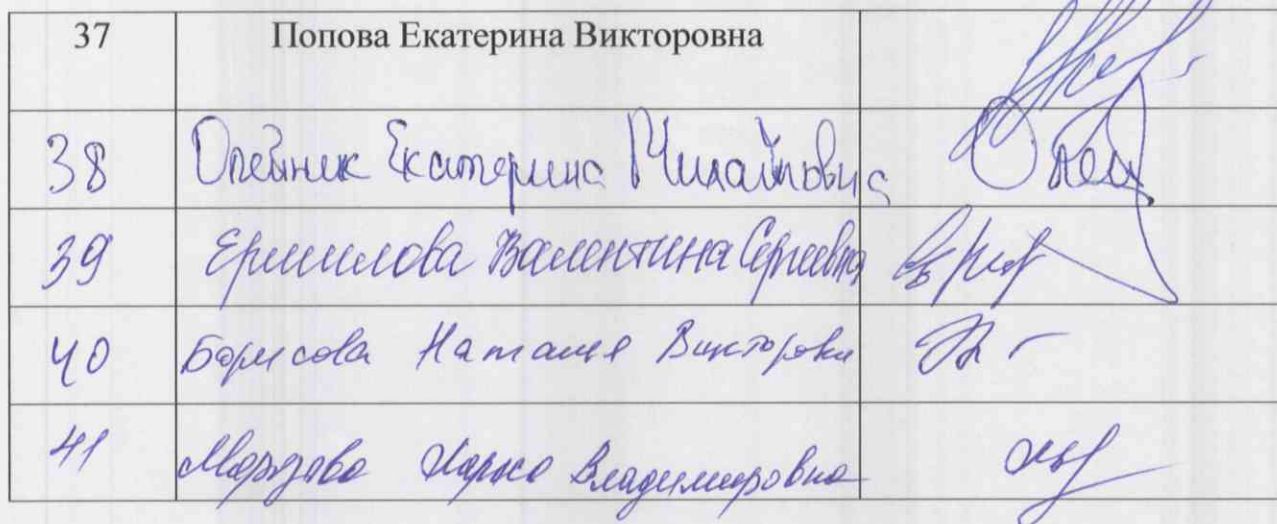 37 Попова Екатерина Викторовна
38 Олейник Екатерина Михайловна
39 Ермилова Валентина Сергеевна
40 Борисова Наталья Викторовн
41 Владимировна